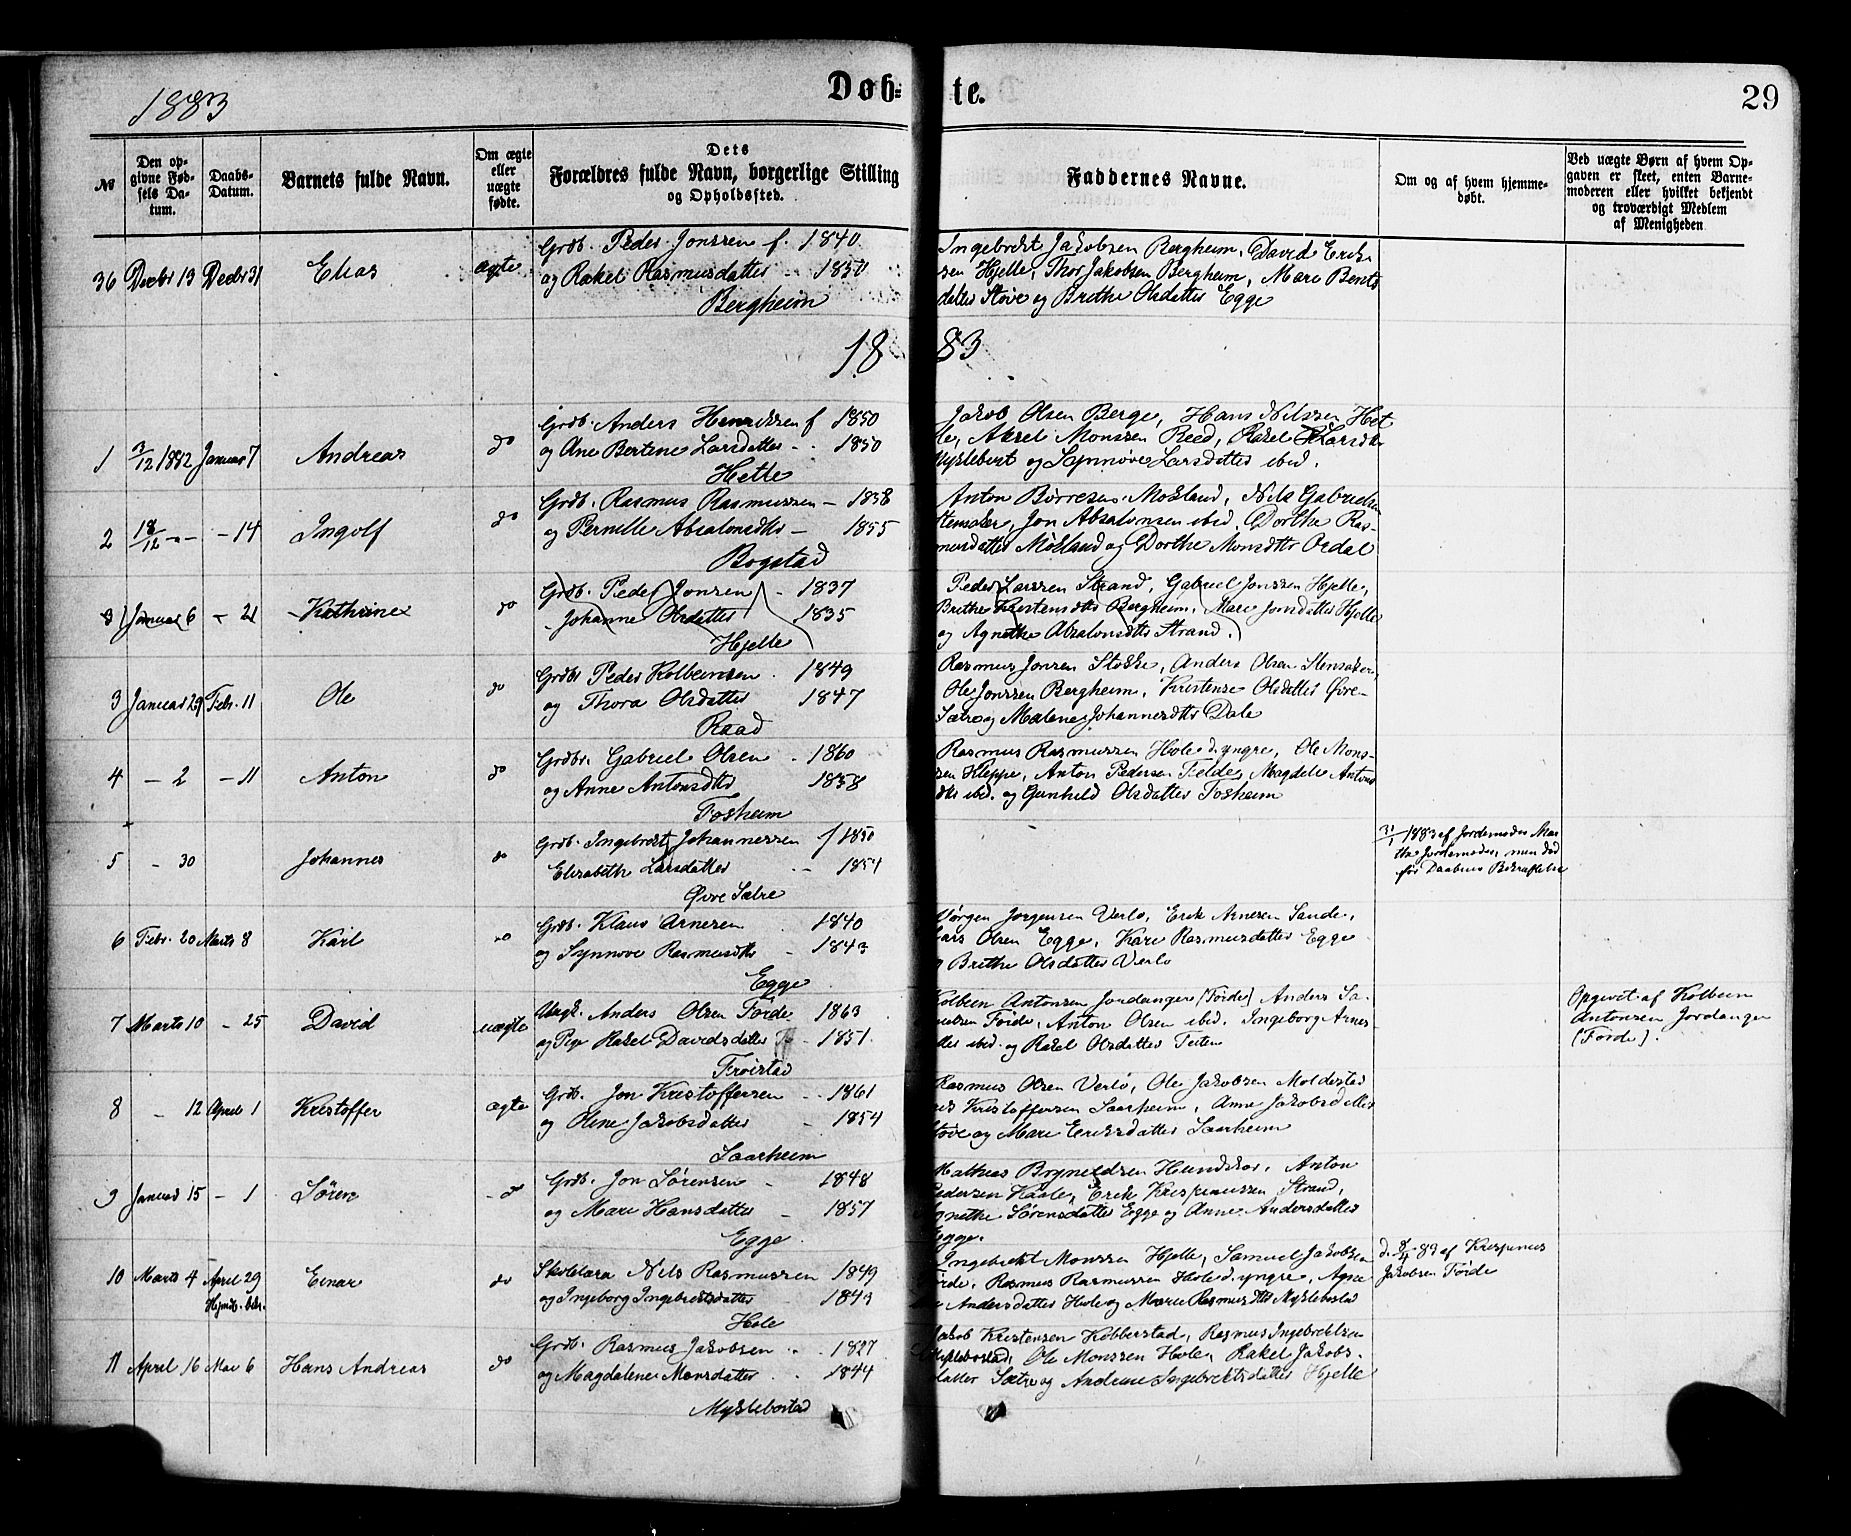 1883
Døb- te.
29
№
Den op-
givne Fød-
sels Da-
tum.
Daabs-
Datum.
Barnets fulde Navn.
Om ægte
eller
uægte
fødte.
Dets
Forældres fulde Navn, borgerlige Stilling
og Opholdssted.
Faddernes Navne.
Om og af hvem hjemme-
døbt.
Ved uægte Børn af hvem Op-
gaven er skeet, enten Barne-
moderen eller hvilket bekjendt
og troværdigt Medlem
af Menigheden
36 Decbr 13 Decbr 31 Elias ægte
Grdb. Peder Jonssen f. 1840
og Rakel Rasmusdatter - 1850
Bergheim
Ingebrekt Jakobsen Bergheim, David Erik-
sen Hjelle, Thor Jakobsen Bergheim, Mari Bents
datter Støve og Brithe Olsdatter Egge
1883
1 3/12 1882 Januar 7 Andreas do
Grdb. Anders Henrikssen f 1850
og Ane Bertine Larsdatter - 1850
Hetle
Jakob Olsen Berge, Hans Nilssen Het
le, Aksel Monssen Reed, Rakel Larsdtr
Myklebust og Synnøve Larsdatter ibid.
2 18/12 - - 14 Ingolf do
Grdb. Rasmus Rasmussen - 1858
og Pernille Absalonsdtr - 1855
Bogstad
Anton Børresen Mokland, Nils Gabrielsen
Stensaker, Jon Absalonsen ibid, Dorthe Ras-
musdatter Mokland og Dorthe Monsdtr Ordal
3 Januar 6 - 21 Kathrine do
Grdb. Peder Jonsen - 1837
Johanne Olsdatter 1835
Hjelle
Peder Larssen Strand, Gabriel Jonssen Hjelle,
Brithe Kristensdtr Bergheim, Mari Jonsdatter Hjelle
og Agnethe Absalonsdtr Strand.
3 Januar 29 Febr. 11 Ole do
Grdbr Peder Kolbeinsen 1849
og Thora Olsdatter 1847
Raad
Rasmus Jonsen Stokke, Anders Olsen Stensaker,
Ole Jonssen Bergheim, Kristense Olsdatter Øvre-
Sætre og Malene Johannesdtr Dale
4 - 2 - 11 Anton do
Grdbr. Gabriel Olsen 1860
og Anne Antonsdtr 1858
Fosheim
Rasmus Rasmussen Hole d. yngre, Ole Mons-
sen Kleppe, Anton Pedersen Felde, Magdeli Antons
dtr ibid. og Gunhild Olsdatter Fosheim
5 - 30 Johannes do
Grdb. Ingebrekt Johannessen f 1850
Elisabeth Larsdatter - 1854
Øvre Sætre
31/1 1883 af Jordemoder Mar
the Jordemoder, men død
før Daabens Bekræftelse
6 Febr. 20 Marts 8 Karl do
Grdb. Klaus Arnesen 1840
og Synnøve Rasmusdtr - 1843
Egge
Jørgen Jørgensen Verlo, Erik Arnesen Sande,
Lars Olsen Egge, Kari Rasmusdatter Egge
og Brithe Olsdatter Verlo
7 Marts 10 - 25 David uægte
Ungk. Anders Olsen Førde 1863
og Pige Rakel Davidsdatter 1851
Frøistad
Kolbein Antonsen Jordanger (Førde) Anders Sa-
muelsen Førde, Anton Olsen ibid. Ingeborg Arnes-
datter ibid. og Rakel Olsdatter Teiten
Opgivet af Kolbein
Antonsen Jordanger
(Førde).
8 - 12 April 1 Kristoffer ægte
Grdb. Jon Kristoffersen - 1861
og Oline Jakobsdatter - 1854
Saarheim
Rasmus Olsen Verlo, Ole Jakobsen Moldestad
Kristoffersen Saarheim, Anne Jakobsdatter
Støve og Mari Eriksdatter Saarheim
9 Januar 15 - 1 Søren do
Grdb. Jon Sørensen - 1848
og Mari Hansdatter - 1857
Egge
Mathias Brynildsen Hundskar, Anton
Pedersen Hole, Erik Krispinussen Strand,
Agnethe Sørensdatter Egge og Anne Andersdatter
Egge.
10 Marts 4 April 29 Einar do
Hjmdb. bekr.
Skolelærer Nils Rasmussen 1849
og Ingeborg Ingebrektsdatter 1843
Hole
Ingebrekt Monssen Hjelle, Samuel Jakobsen
Førde, Rasmus Rasmussen Hole d. yngre, Agne
te Andersdatter Hole og Marie Rasmusdtr Myklebostad
d. 8/4 83 af Krispinus
Jakobsen Førde
11 April 16 Mai 6 Hans Andreas do
Grdb. Rasmus Jakobsen - 1827
og Magdalene Monsdatter - 1844
Myklebostad
Jakob Kristensen Kobberstad, Rasmus Ingebrektsen
Myklebostad, Ole Monssen Hole, Rakel Jakobs-
datter Sætre og Andrine Ingebrektsdatter Hjelle